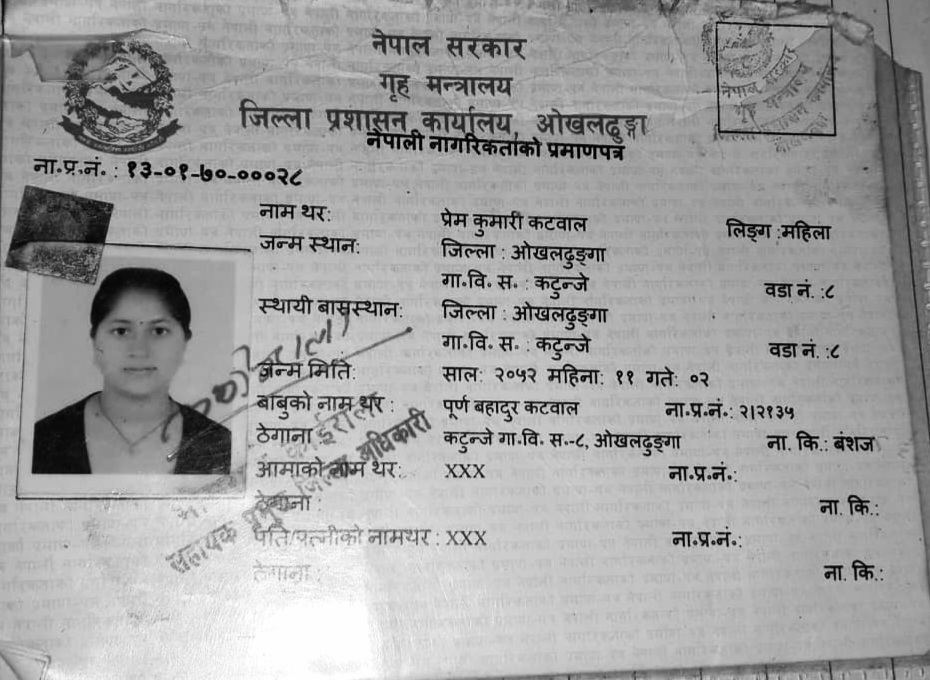 नेपाल सरकार
गृह मन्त्रालय
जिल्ला प्रशासन कार्यालय, ओखलढुङ्गा
नेपाली नागरिकताको प्रमाणपत्र
ना.प्र.नं. : १३-०१-७०-०००२८
नाम थर: प्रेम कुमारी कटवाल लिङ्ग :महिला
जन्म स्थान: जिल्ला : ओखलढुङ्गा
गा.वि. स. : कटुन्जे वडा नं. :८
स्थायी बासस्थान: जिल्ला : ओखलढुङ्गा
गा.वि. स. : कटुन्जे वडा नं. :८
जन्म मिति: साल: २०५२ महिना: ११ गते: ०२
बाबुको नाम थर : पूर्ण बहादुर कटवाल ना.प्र.नं.: २१२१३५
ठेगाना : कटन्जे गा.वि. स.-८, ओखलढुङ्गा ना. कि.: बंशज
आमाको नाम थर: XXX ना.प्र.नं.:
ठेगाना : ना. कि.:
पति/पत्नीको नामथर : XXX ना.प्र.नं.:
ठेगाना : ना. कि.:
नेपाल सरकार
गृह मन्त्रालय
सहायक प्रमुख जिल्ला अधिकारी